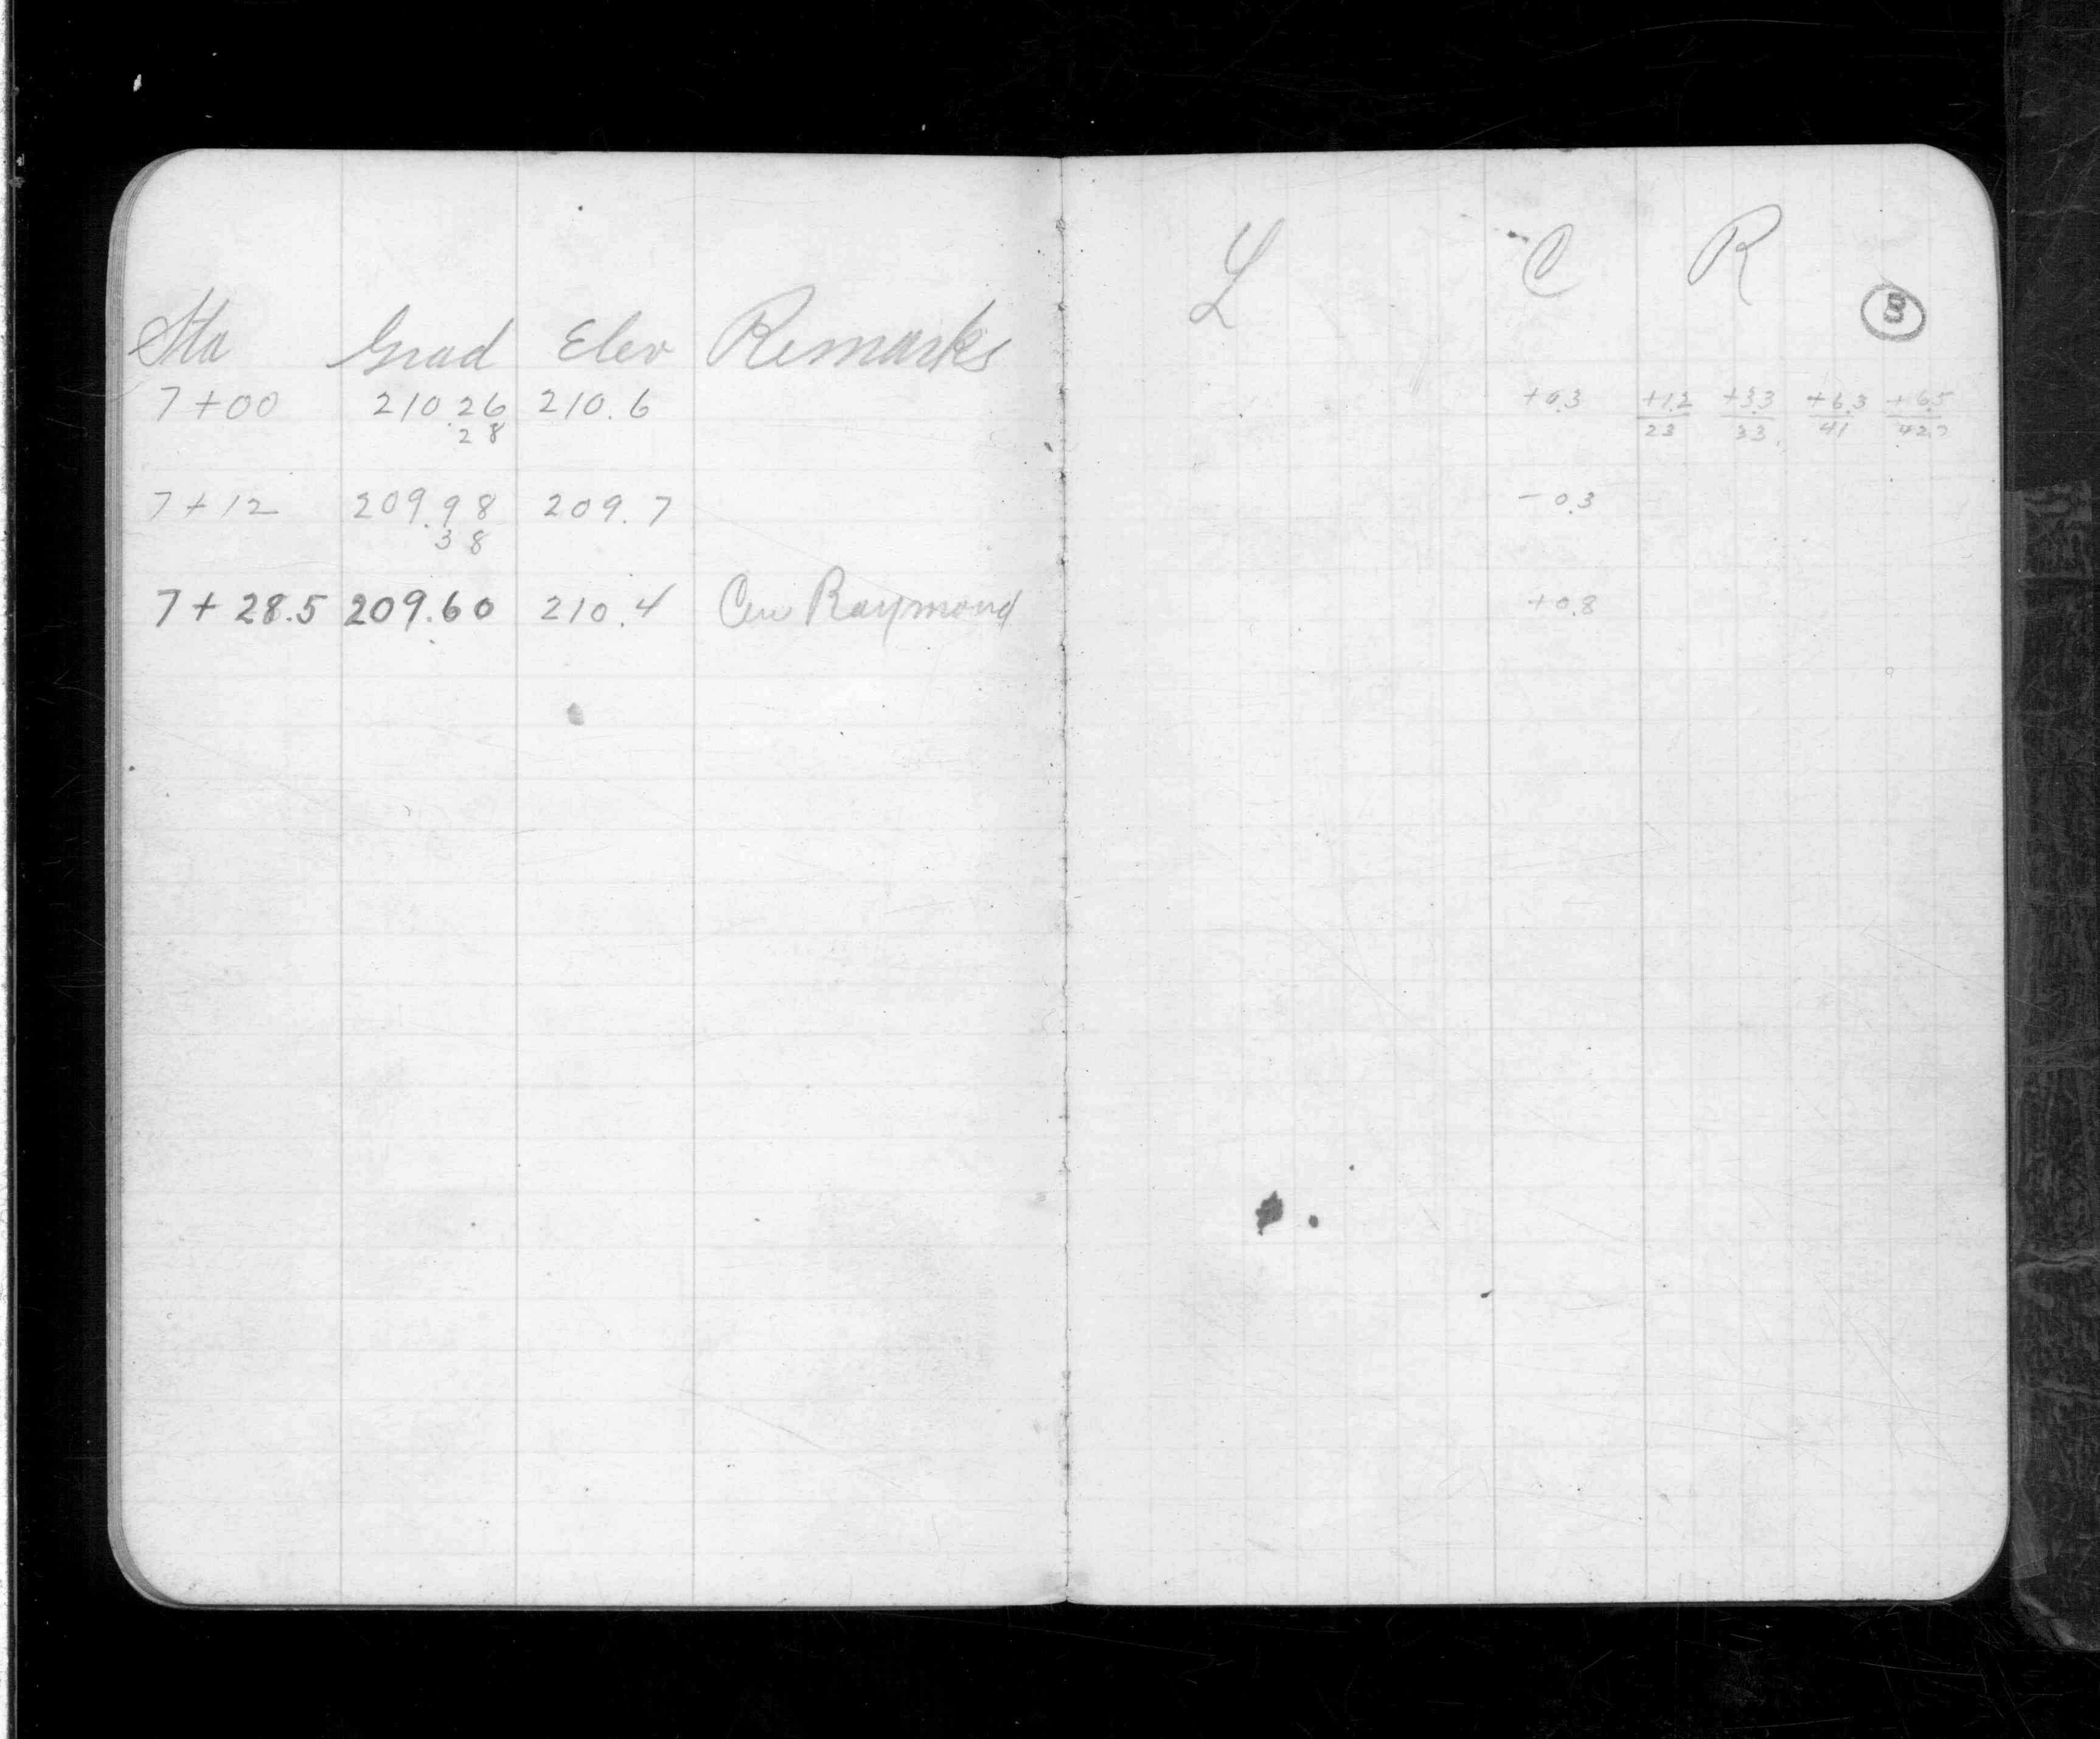 L C R
3
Sta Grad Elev Remarks
7+00 210.26 210.6 +0.3 +1.2/23 +3.3/33 +6.3/41 +6.5/42.
28
7+12 209.98 209.7 -0.3
38
7+28.5 209.60 210.4 Cen Raymond +0.8